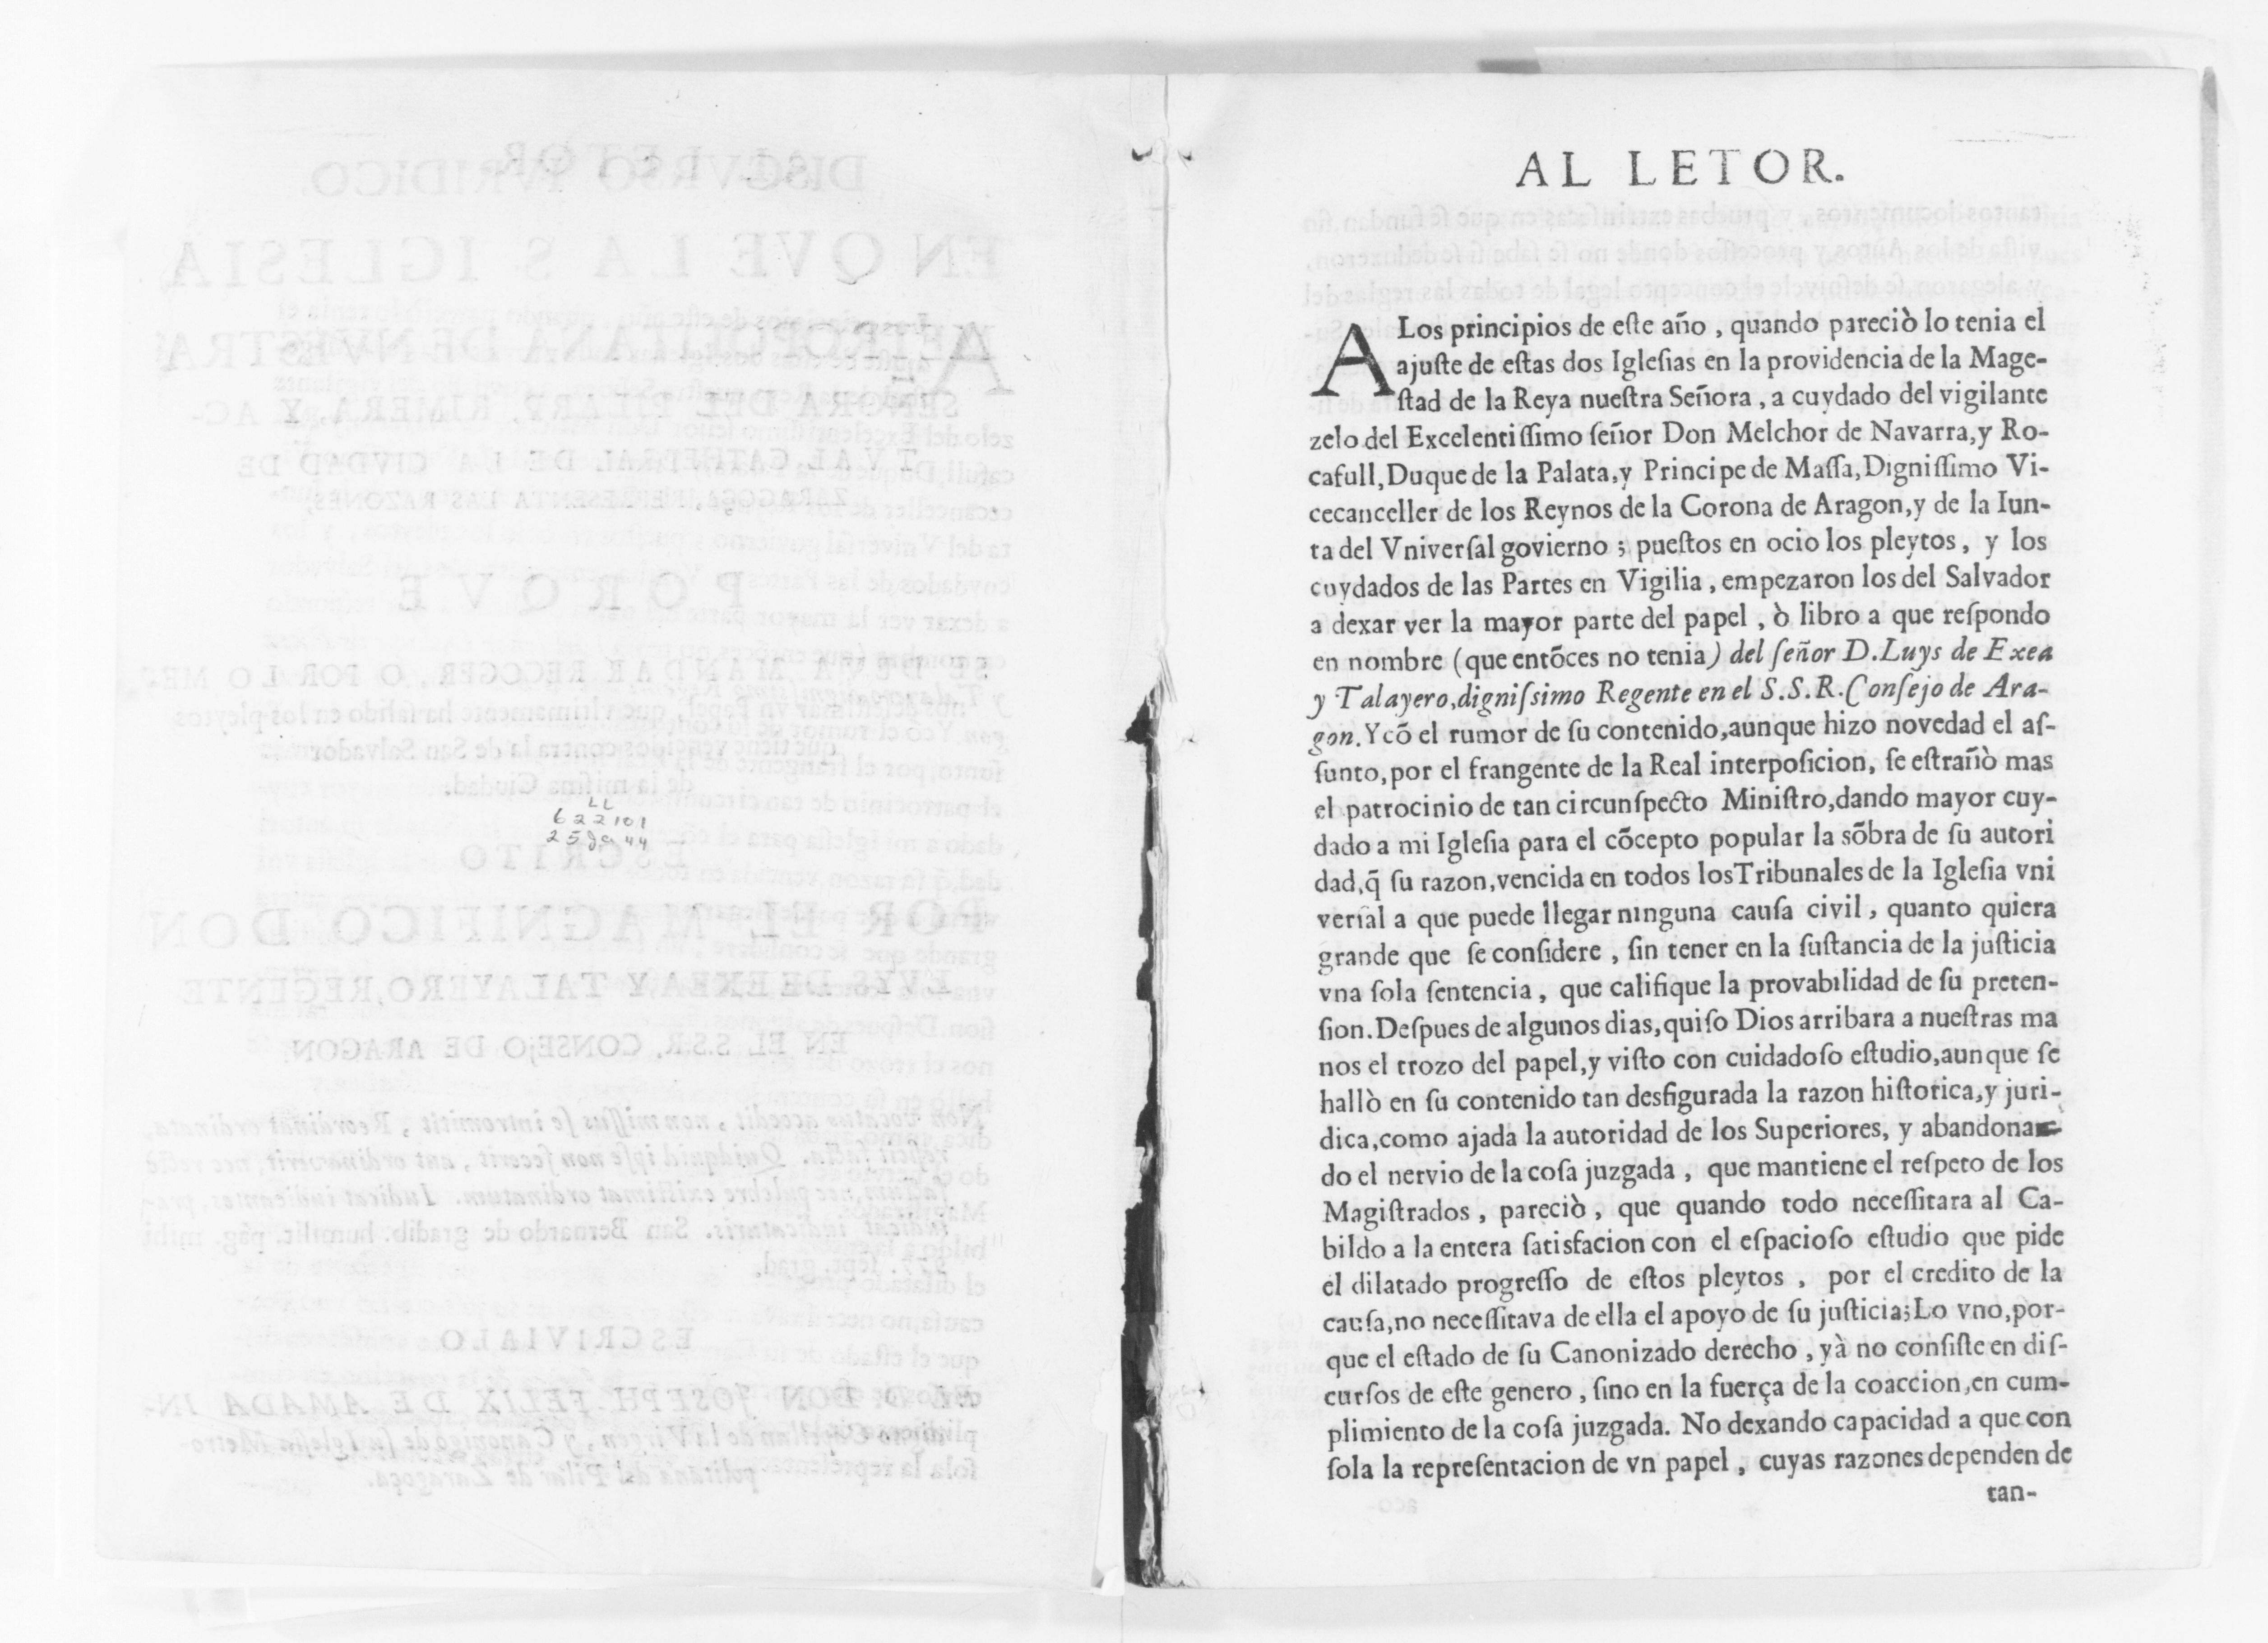 LL
622101
25
44
AL LETOR.
A Los principios de este año, quando pareciò lo tenia el
ajuste de estas dos Iglesias en la providencia de la Mage-
stad de la Reya nuestra Señora, a cuydado del vigilante
zelo del Excelentissimo señor Don Melchor de Navarra, y Ro-
cafull, Duque de la Palata, y Principe de Massa, Dignissimo Vi-
cecanceller de los Reynos de la Corona de Aragon, y de la Iun-
ta del Vniversal govierno; puestos en ocio los pleytos, y los
cuydados de las Partes en Vigilia, empezaron los del Salvador
a dexar ver la mayor parte del papel, ò libro a que respondo
en nombre (que entõces no tenia) del señor D. Luys de Exea
y Talayero, dignissimo Regente en el S. S. R. Consejo de Ara-
gon. Y cõ el rumor de su contenido, aunque hizo novedad el as-
sunto, por el frangente de la Real interposicion, se estrañò mas
el patrocinio de tan circunspecto Ministro, dando mayor cuy-
dado a mi Iglesia para el cõcepto popular la sõbra de su autori
dad, q̃ su razon, vencida en todos los Tribunales de la Iglesia vni
versal a que puede llegar ninguna causa civil, quanto quiera
grande que se considere, sin tener en la sustancia de la justicia
vna sola sentencia, que califique la provabilidad de su preten-
sion. Despues de algunos dias, quiso Dios arribara a nuestras ma
nos el trozo del papel, y visto con cuidadoso estudio, aunque se
hallò en su contenido tan desfigurada la razon historica, y juri-
dica, como ajada la autoridad de los Superiores, y abandona-
do el nervio de la cosa juzgada, que mantiene el respeto de los
Magistrados, pareciò, que quando todo necessitara al Ca-
bildo a la entera satisfacion con el espacioso estudio que pide
el dilatado progresso de estos pleytos, por el credito de la
causa, no necessitava de ella el apoyo de su justicia; Lo vno, por-
que el estado de su Canonizado derecho, yà no consiste en dis-
cursos de este genero, sino en la fuerça de la coaccion, en cum-
plimiento de la cosa juzgada. No dexando capacidad a que con
sola la representacion de vn papel, cuyas razones dependen de
tan-